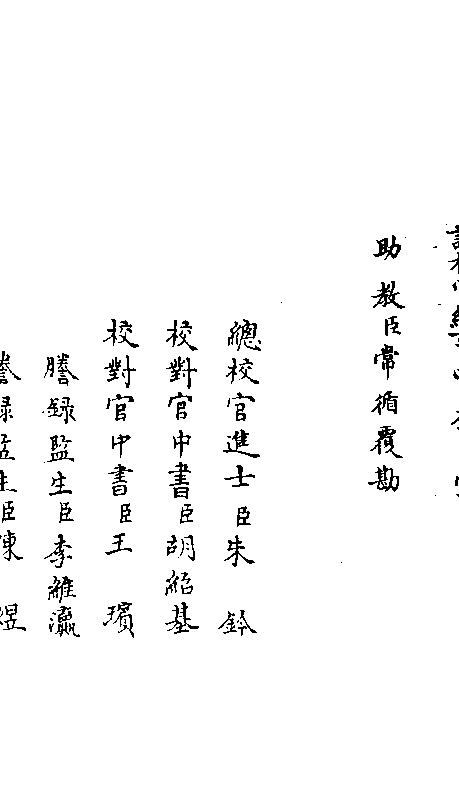 助教臣常循覆勘
總校官進士臣朱鈐
校對官中書臣胡紹基
校對官中書臣王璸
謄録監生臣李維瀛
謄録監生臣陳煜